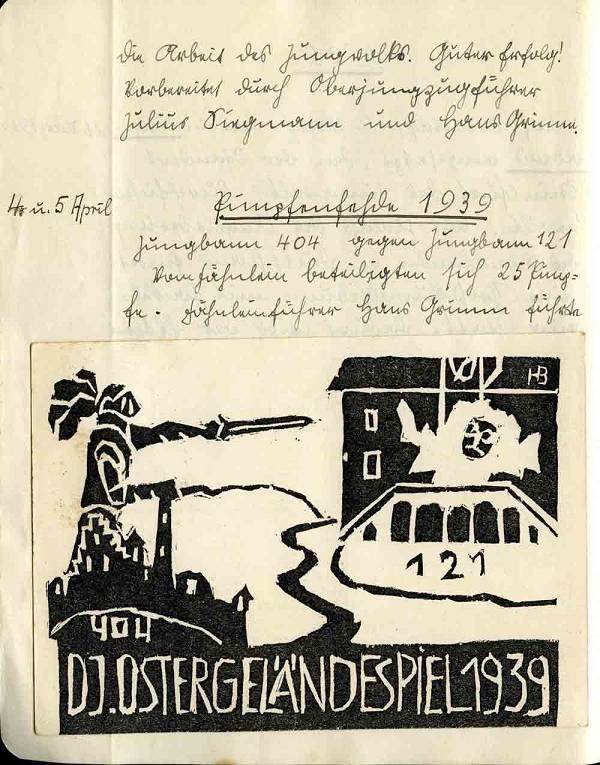 die Arbeit des Jungvolks. Guter Erfolg!
Vorbereitet durch Oberjungzugführer
Julius Siegmann und Hans Grimm.
4. u. 5 April
Pimpfenfehde 1939
Jungbann 404 gegen Jungbann 121
Vom Fähnlein beteiligten sich 25 Pimp-
fe. Fähnleinführer Hans Grimm führte
HB
121
404
DJ. OSTERGELÄNDESPIEL 1939